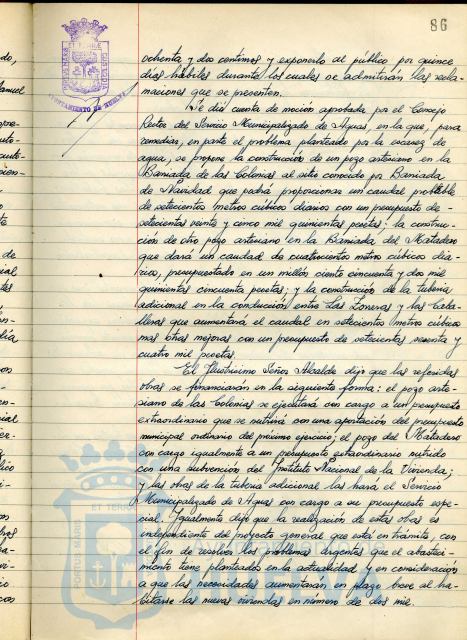 86
PORTUS MARIS ET TERRE CUSTODIA
AYUNTAMIENTO DE HUELVA
ochenta y dos centimos y exponerlo al publico por quince
dias hábiles durante los cuales se admitirán las recla-
maciones que se presenten.
Se dió cuenta de moción aprobada por el Consejo
Rector del Servicio Municipalizado de Aguas, en la que, para
remediar, en parte el problema planteado por la escasez de
agua, se propone la construcción de un pozo artesiano en la
Barriada de las Colonias al sitio conocido por Barriada
de Navidad que podrá proporcionar un caudal probable
de setecientos metros cúbicos diarios con un presupuesto de
setecientas veinte y cinco mil quinientas pesetas; la construc-
cion de otro pozo artesiano en la Barriada del Matadero
que dará un caudal de cuatrocientos metros cúbicos dia-
rios, presupuestado en un millón ciento cincuenta y dos mil
quinientas cincuenta pesetas; y la construcción de la tuberia
adicional en la conducción entre Las Loneras y las Caba-
lleras que aumentará el caudal en setecientos metros cúbicos
mas otras mejoras con un presupuesto de setecientas sesenta y
cuatro mil pesetas.
El Ilustrisimo Señor Alcalde dijo que las referidas
obras se financiarán en la siguiente forma: el pozo arte-
siano de las Colonias se ejecutará con cargo a un presupuesto
extraordinario que se nutrirá con una aportación del presupuesto
municipal ordinario del próximo ejercicio; el pozo del Matadero
con cargo igualmente a un presupuesto extraordinario nutrido
con una subvención del Instituto Nacional de la Vivienda;
y las obras de la tuberia adicional las hará el Servicio
Municipalizado de Aguas con cargo a su presupuesto espe-
cial. Igualmente dijo que la realización de estas obras es
independiente del proyecto general que está en trámite, con
el fin de resolver los problemas urgentes que el abasteci-
miento tiene planteados en la actualidad y en consideración
a que las necesidades aumentarán en plazo breve al ha-
bitarse las nuevas viviendas en número de dos mil.